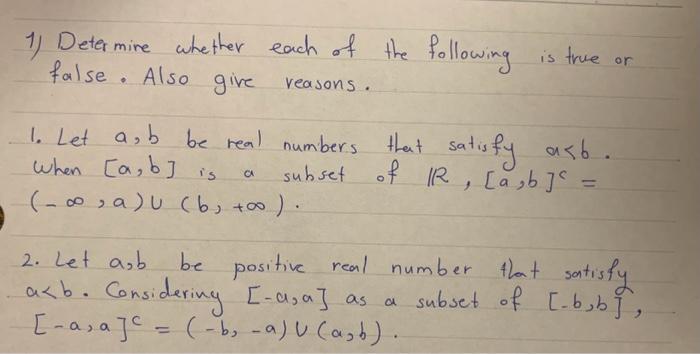 1) Determine whether each of the following is true or
false. Also give reasons.
1. Let a,b be real numbers that satisfy a<b.
when [a,b] is a subset of ℝ, [a,b]ᶜ =
(-∞,a)∪(b,+∞).
2. Let a,b be positive real number that satisfy
a<b. Considering [-a,a] as a subset of [-b,b],
[-a,a]ᶜ = (-b,-a)∪(a,b).